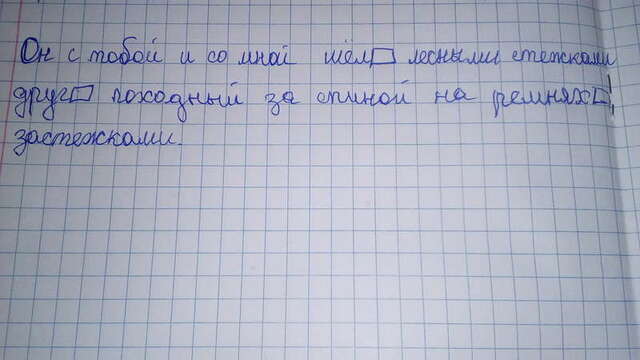 Он с тобой и со мной шёл□ лесными стежками
друг□ походный за спиной на ремнях□
застежками.